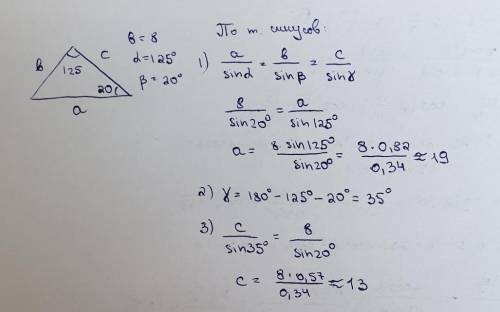 По т. синусов:
в c
125
20°
a
в = 8
α = 125°
β = 20°
1) a/sinα = в/sinβ = c/sinγ
8/sin20° = a/sin125°
a = 8·sin125°/sin20° = 8·0,82/0,34 ≈ 19
2) γ = 180° - 125° - 20° = 35°
3) c/sin35° = 8/sin20°
c = 8·0,57/0,34 ≈ 13